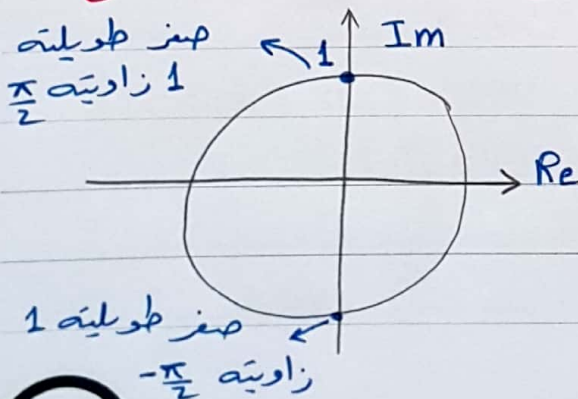 صفر طويلته
1 زاويته π/2
1
Im
Re
صفر طويلته 1
زاويته -π/2